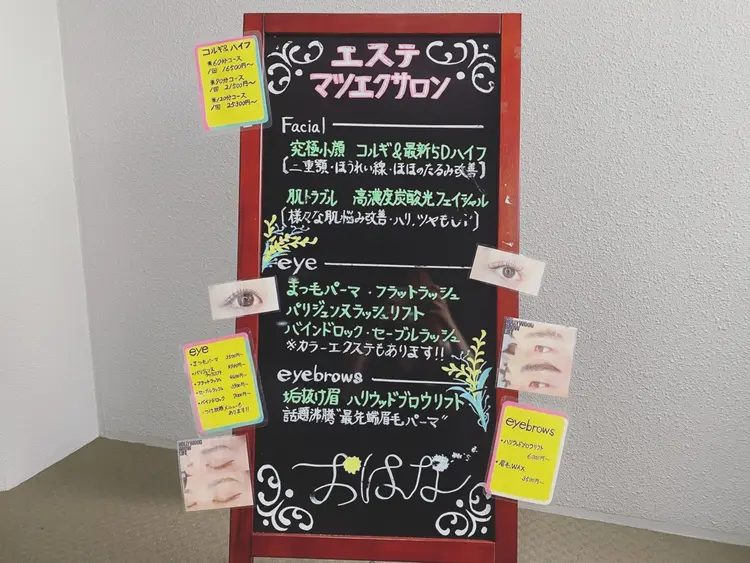 コルギ&ハイフ
※60分コース
1回 16500円〜
※90分コース
1回 21500円〜
※120分コース
1回 25300円〜
エステ
マツエクサロン
Facial
究極小顔 コルギ&最新5Dハイフ
[二重顎・ほうれい線・ほほのたるみ改善]
肌トラブル 高濃度炭酸光フェイシャル
[様々な肌悩み改善・ハリ,ツヤもUP]
eye
まつ毛パーマ・フラットラッシュ
パリジェンヌラッシュリフト
バインドロック・セーブルラッシュ
※カラーエクステもあります!!
eyebrows
垢抜け眉 ハリウッドブロウリフト
話題沸騰"最先端眉毛パーマ"
おはな
eye
・まつ毛パーマ
・パリジェンヌ
・フラットラッシュ
・セーブルラッシュ
・バインドロック
つけ放題メニューも
あります!!
HOLLYWOOD
BROW
LIFT
HOLLYWOOD
BROW
LIFT
eyebrows
・ハリウッドブロウリフト
6,000円〜
・眉毛WAX
3,500円〜